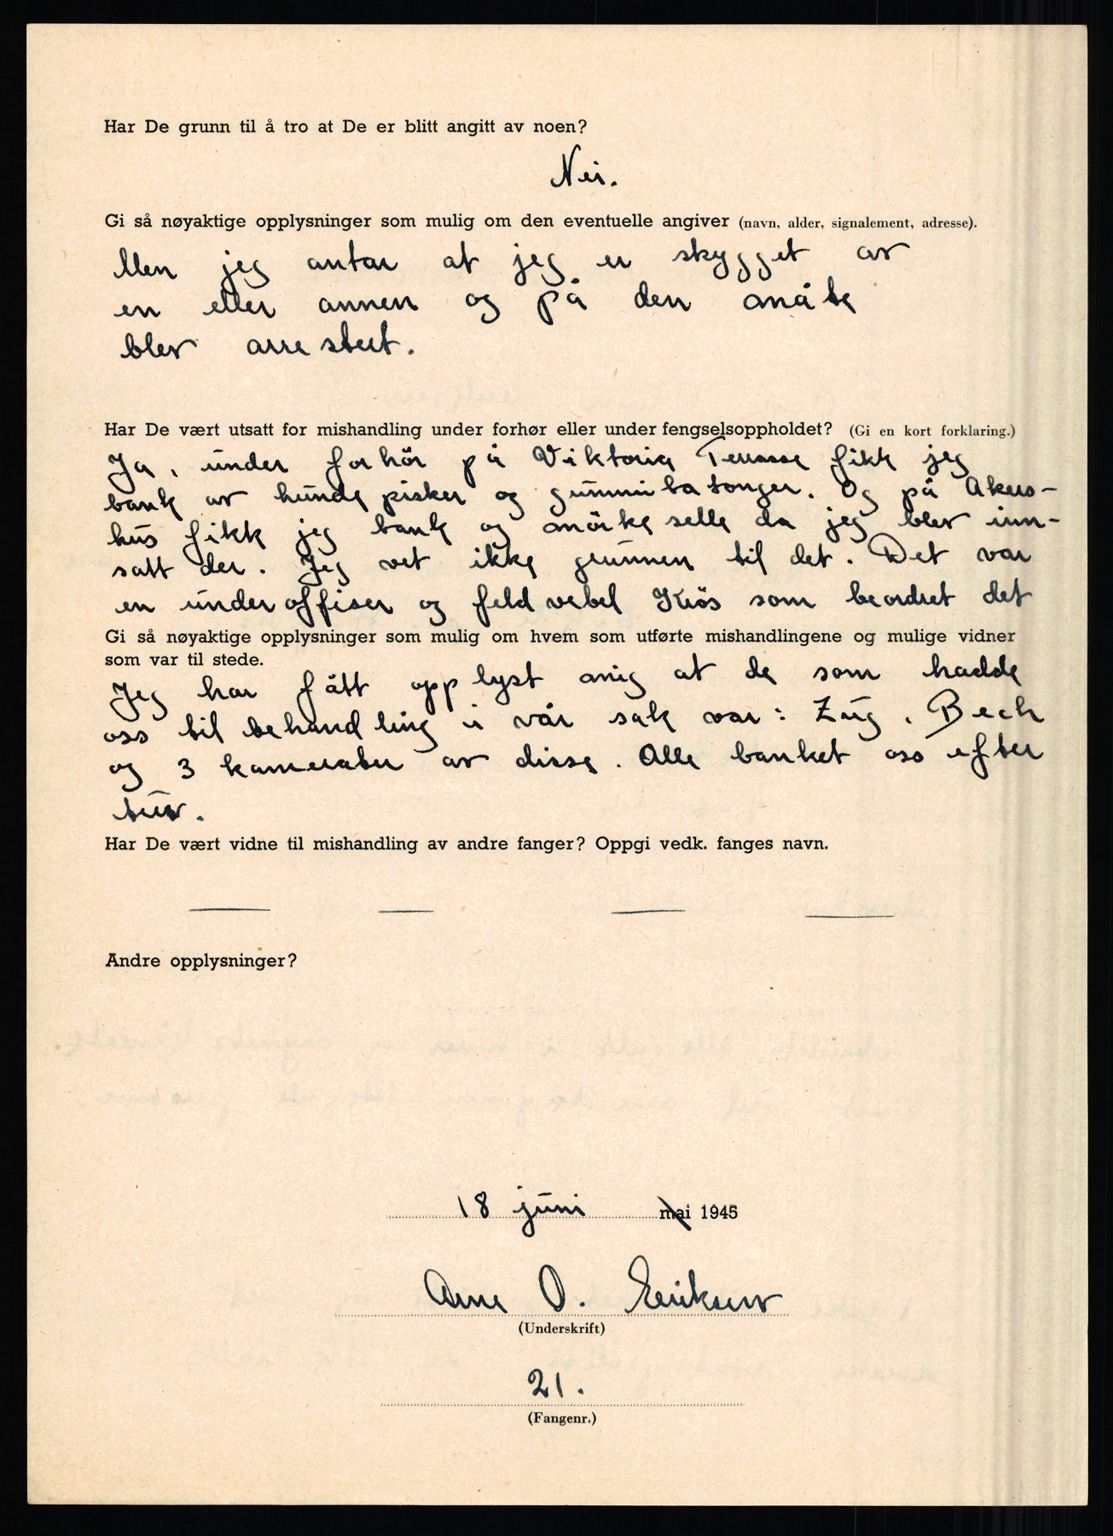 Har De grunn til å tro at De er blitt angitt av noen?
Nei.
Gi så nøyaktige opplysninger som mulig om den eventuelle angiver (navn, alder, signalement, adresse).
Men jeg antar at jeg er skygget av
en eller annen og på den måte
blev arrestert.
Har De vært utsatt for mishandling under forhør eller under fengselsoppholdet? (Gi en kort forklaring.)
Ja, under forhör på Viktoria Terrasse fikk jeg
bank av hundepisker og gummibatonger. Og på Akers-
hus fikk jeg bank og mörkeselle da jeg blev inn-
satt der. Jeg vet ikke grunnen til det. Det var
en underoffiser og feldvebel Krös som beordret det
Gi så nøyaktige opplysninger som mulig om hvem som utførte mishandlingene og mulige vidner
som var til stede.
Jeg har fått opplyst mig at de som hadde
oss til behandling i vår sak var: Zug, Bech
og 3 kamerater av disse. Alle banket oss efter
tur.
Har De vært vidne til mishandling av andre fanger? Oppgi vedk. fanges navn.
— — — —
Andre opplysninger?
18 juni mai 1945
Arne O. Eriksen
(Underskrift)
21.
(Fangenr.)